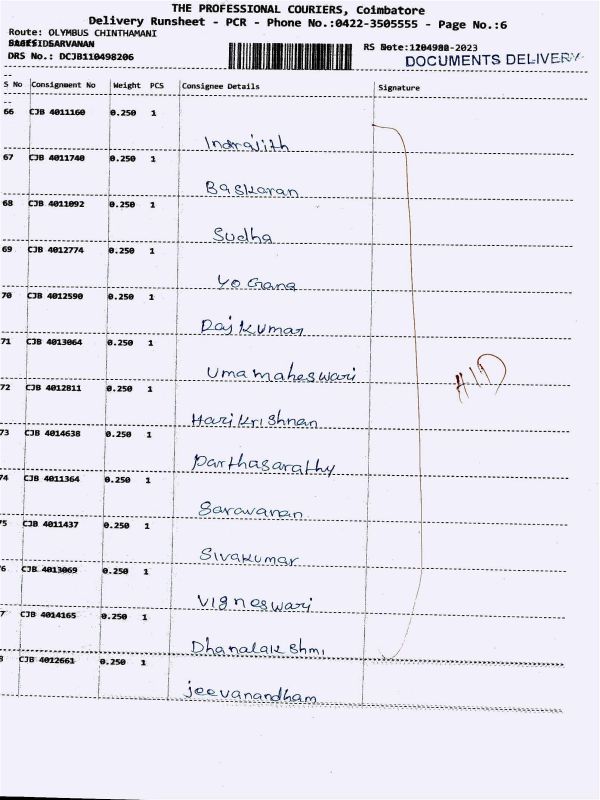 THE PROFESSIONAL COURIERS, Coimbatore
Delivery Runsheet - PCR - Phone No.:0422-3505555 - Page No.:6
Route: OLYMBUS CHINTHAMANI
SARAVANAN
DRS No.: DCJB110498206
RS
-2023
DOCUMENTS DELIVERY
S No Consignment No Weight PCS Consignee Details Signature
66 CJB 4011160 0.250 1
Indrajith
67 CJB 4011740 0.250 1
Baskaran
68 CJB 4011092 0.250 1
Sudha
69 CJB 4012774 0.250 1
Yo Gana
70 CJB 4012590 0.250 1
Rajkumar
71 CJB 4013064 0.250 1
Umamaheswari
72 CJB 4012811 0.250 1
Harikrishnan
73 CJB 4014638 0.250 1
Parthasarathy
74 CJB 4011364 0.250 1
Saravanan
75 CJB 4011437 0.250 1
Sivakumar
6 CJB 4013069 0.250 1
Vigneswari
7 CJB 4014165 0.250 1
Dhanalakshmi
8 CJB 4012661 0.250 1
jeevanandham